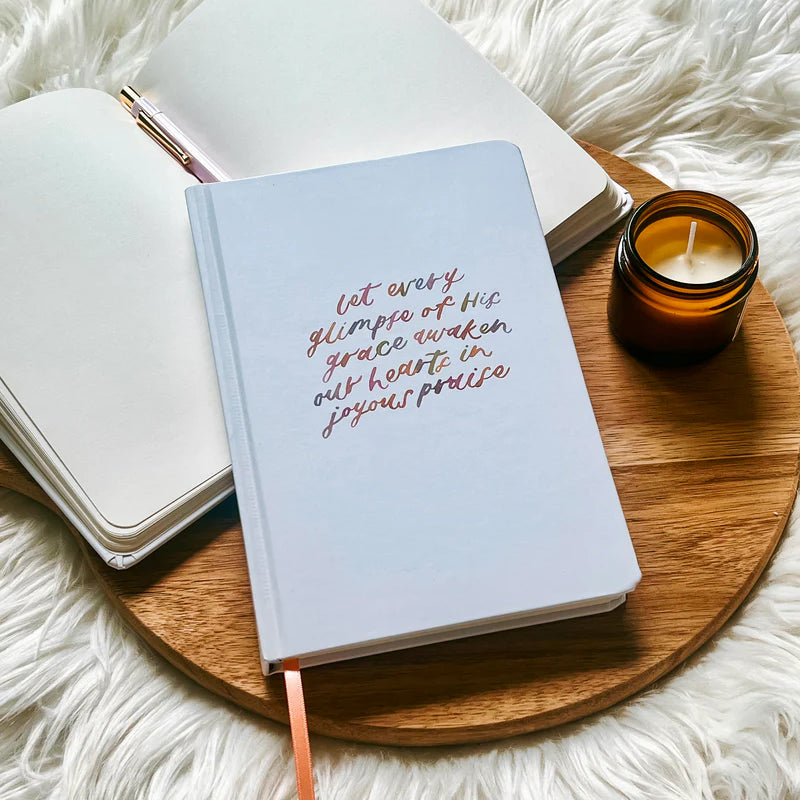 let every
glimpse of His
grace awaken
our hearts in
joyous praise